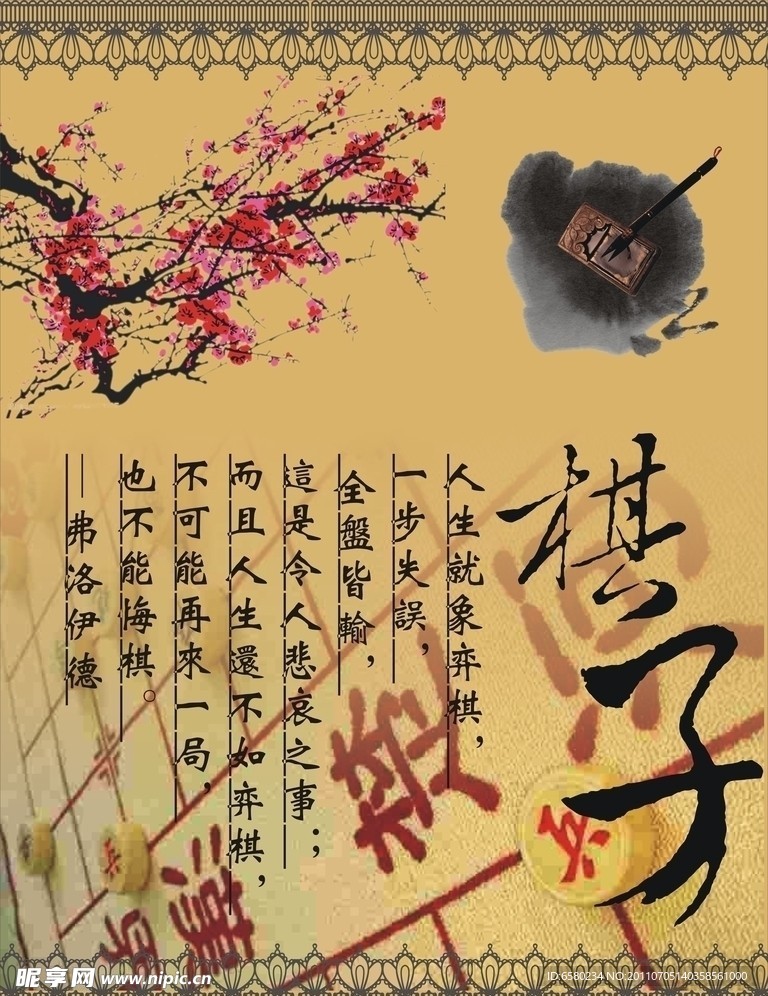 棋子
人生就象弈棋，
一步失誤，
全盤皆輸，
這是令人悲哀之事；
而且人生還不如弈棋，
不可能再來一局，
也不能悔棋。
—弗洛伊德
兵
昵享网 www.nipic.cn
ID:6580234 NO:20110705140358561000